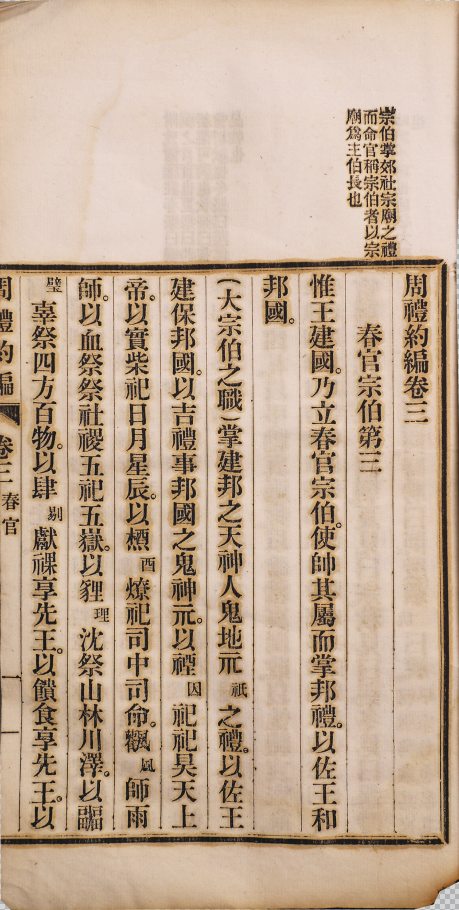 宗伯掌郊社宗廟之禮
而命官稱宗伯者以宗
廟爲主伯長也
周禮約編卷三
春官宗伯第三
惟王建國。乃立春官宗伯。使帥其屬而掌邦禮。以佐王和
邦國。
(大宗伯之職)掌建邦之天神人鬼地示祇之禮。以佐王
建保邦國。以吉禮事邦國之鬼神示。以禋因祀祀昊天上
帝。以實柴祀日月星辰。以槱酉燎祀司中司命。飌風師雨
師。以血祭祭社稷五祀五嶽。以貍理沈祭山林川澤。以疈
璧辜祭四方百物。以肆剔獻祼享先王。以饋食享先王。以
周禮約編 卷三 春官 一